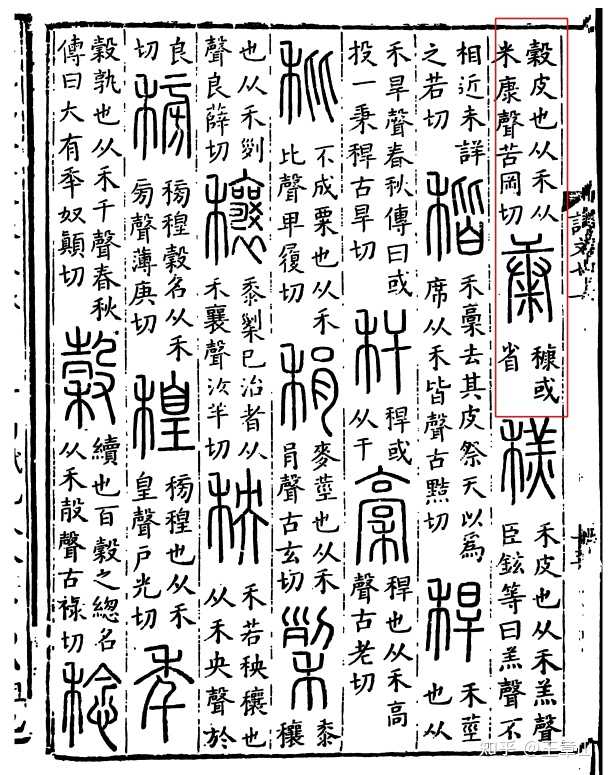 穀皮也从禾从
米康聲苦岡切
康
穅或
省
禾皮也从禾羔聲
臣鉉等曰羔聲不
相近未詳
之若切
稭
禾稾去其皮祭天以爲
席从禾皆聲古黠切
稈
禾莖
也从
禾旱聲春秋傳曰或
投一秉稈古旱切
秆
稈或
从干
稾
稈也从禾高
聲古老切
秕
不成粟也从禾
比聲卑履切
稍
麥莖也从禾
肙聲古玄切
𥠻
黍
穰
也从禾𠛱
聲良薛切
穰
黍𥠻已治者从
禾襄聲汝羊切
秧
禾若秧穰也
从禾央聲於
良
切
䅭
䅭䅣穀名从禾
旁聲薄庚切
䅣
䅭䅣也从禾
皇聲戶光切
秊
穀孰也从禾千聲春秋
傳曰大有秊奴顚切
穀
續也百穀之緫名
从禾㱿聲古祿切
稔
知乎